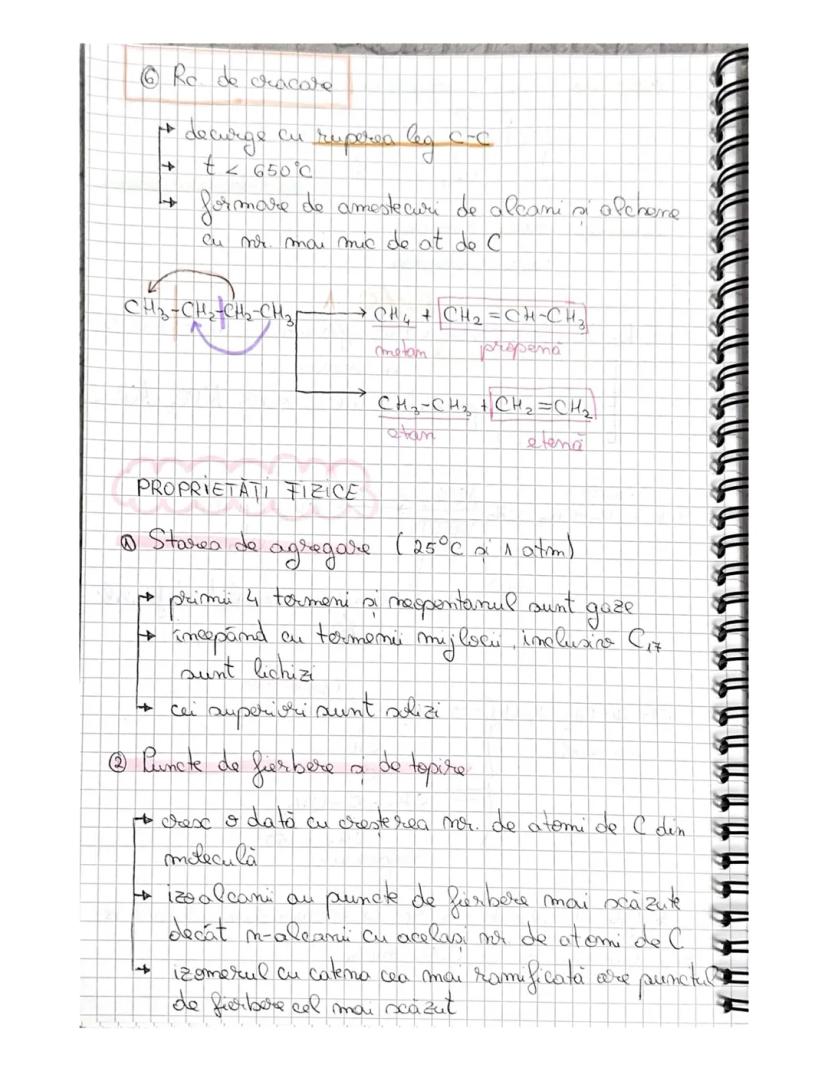 ⑥ Rc. de cracare
→ decurge cu ruperea leg C-C
→ t < 650°C
→ formare de amestecuri de alcani și alchene
cu nr. mai mic de at de C
CH₃-CH₂-CH₂-CH₃ → CH₄ + CH₂=CH-CH₃
metan propenă
→ CH₃-CH₃ + CH₂=CH₂
etan etenă
PROPRIETĂȚI FIZICE
① Starea de agregare (25°C și 1 atm)
→ primii 4 termeni și neopentanul sunt gaze
→ începând cu termenii mijlocii, inclusiv C₁₇
sunt lichizi
→ cei superiori sunt solizi
② Puncte de fierbere și de topire
→ cresc o dată cu creșterea nr. de atomi de C din
moleculă
→ izoalcanii au puncte de fierbere mai scăzute
decât n-alcanii cu același nr de atomi de C
→ izomerul cu catena cea mai ramificată are punctul
de fierbere cel mai scăzut